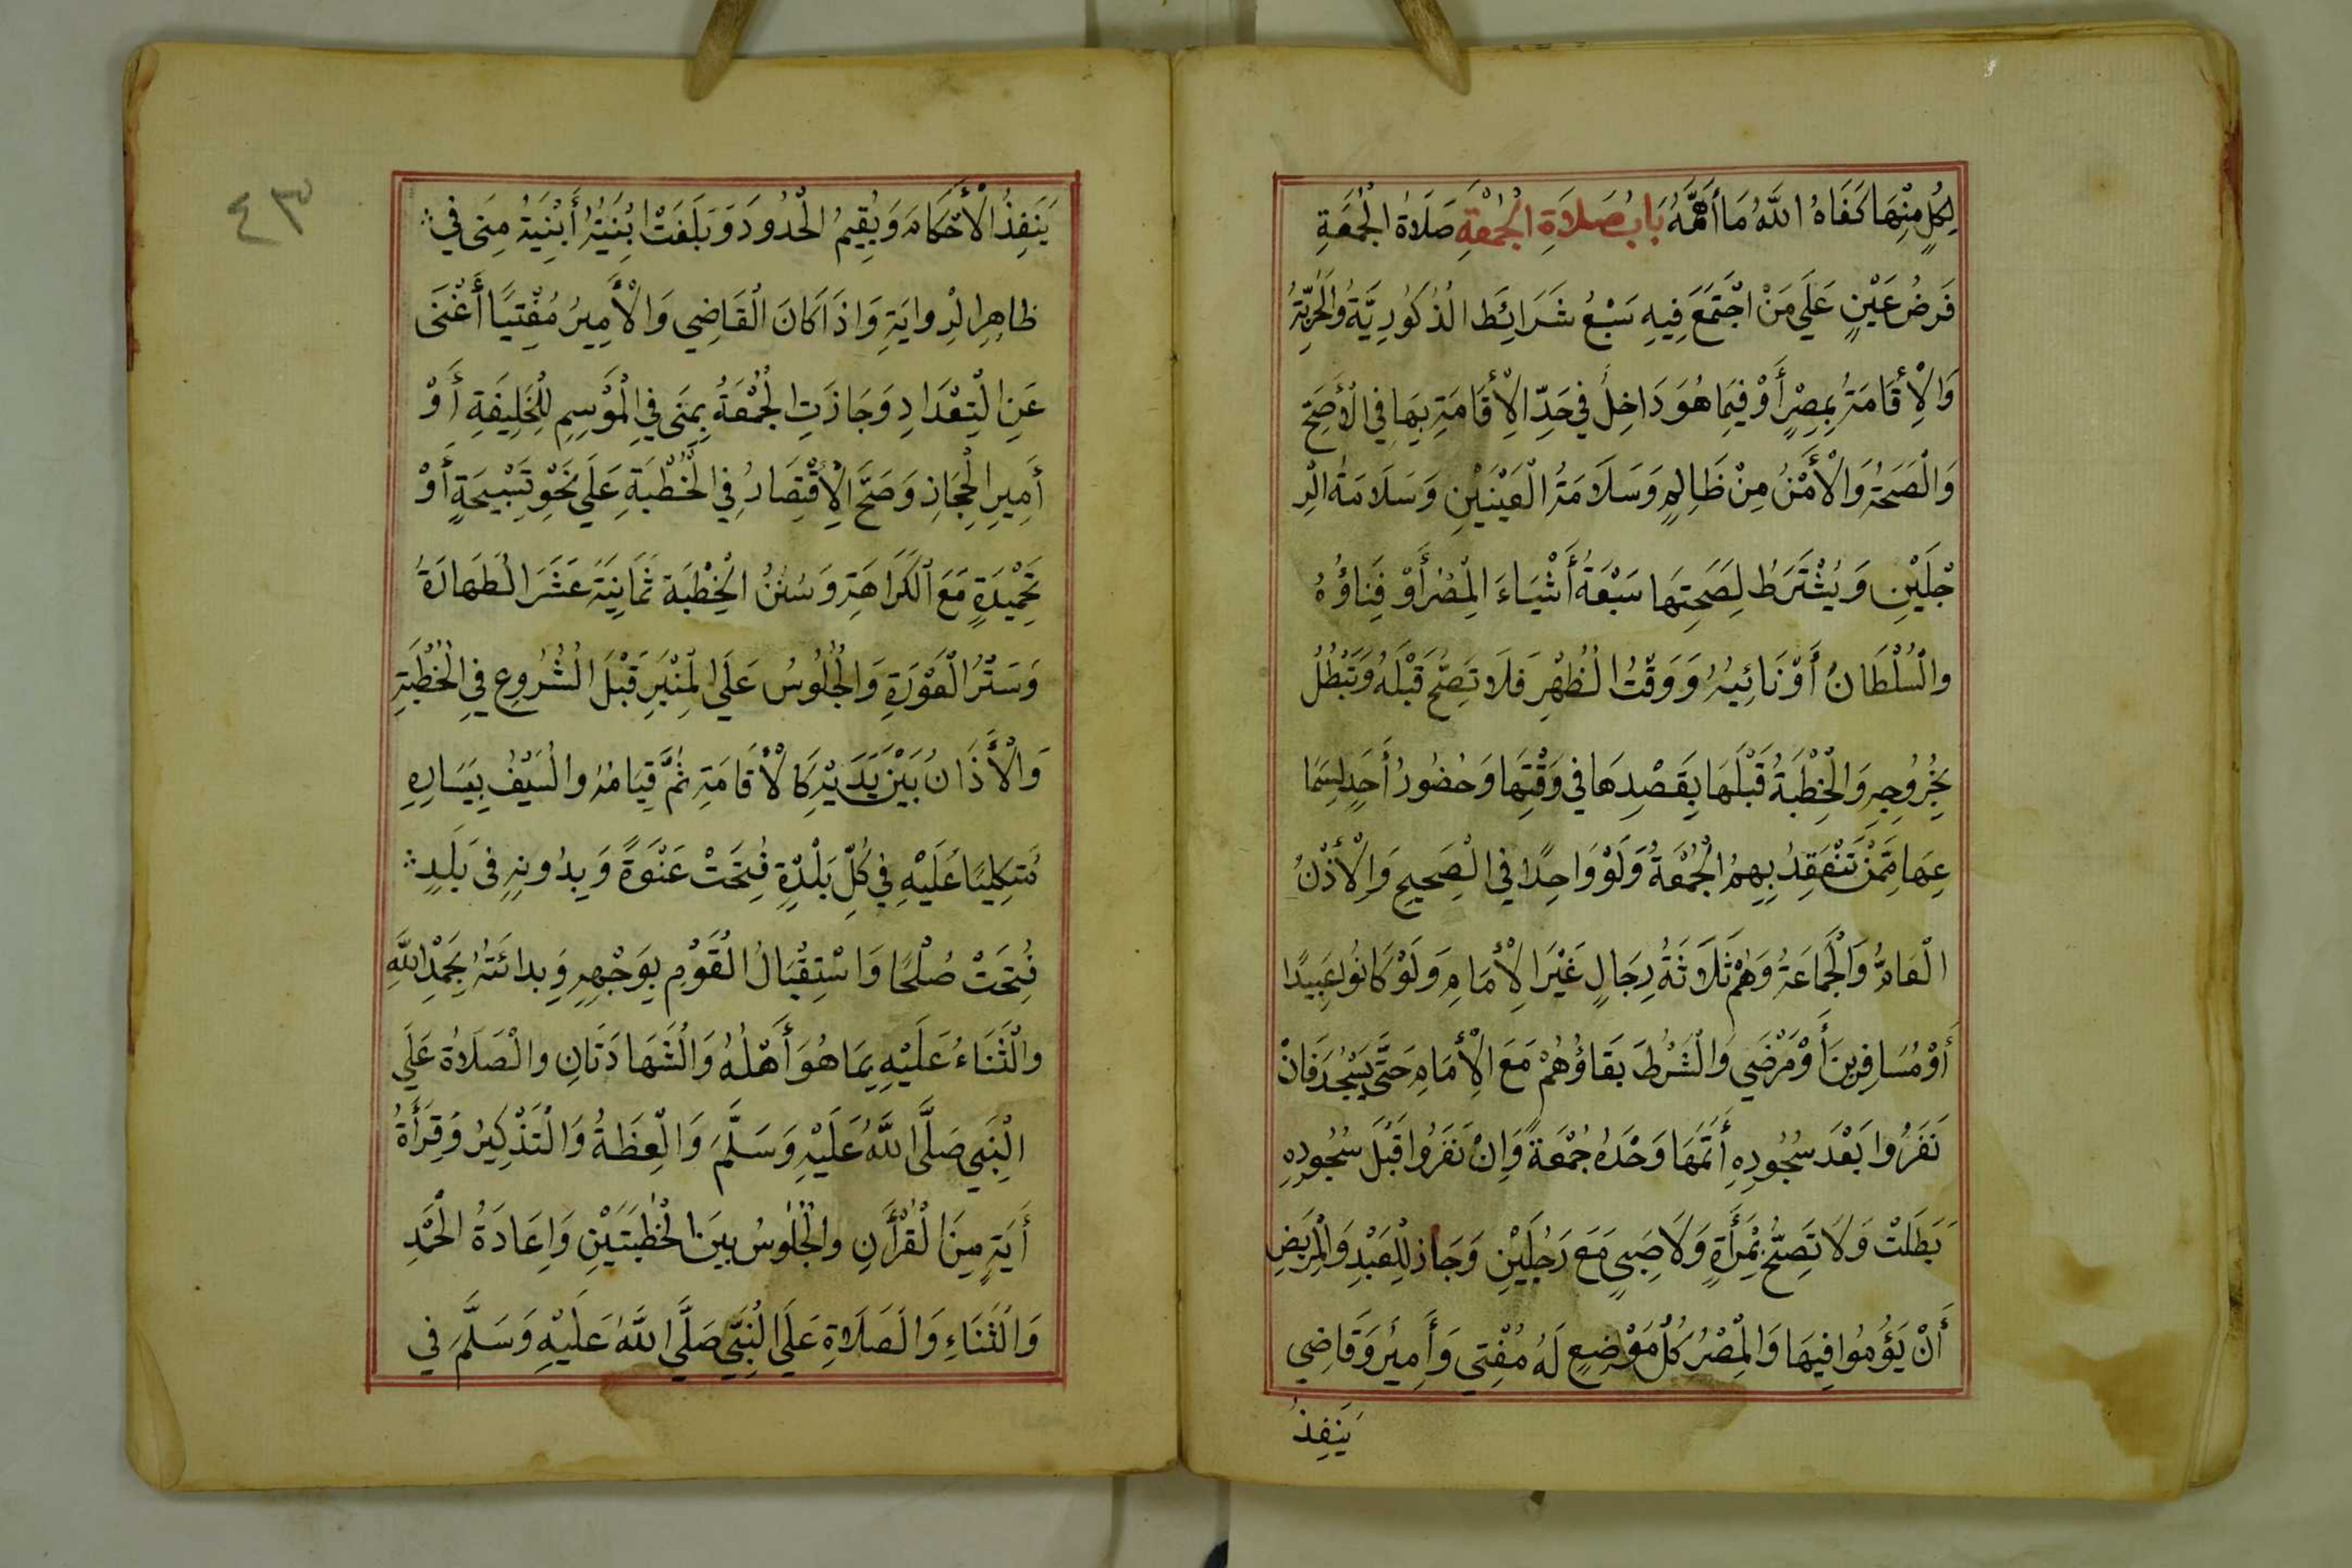 لِكُلٍ مِنْهَا كَفَاهُ اللَّهُ مَا أَهَمَّهُ بَابُ صَلَاةِ الْجُمُعَةِ صَلَاةُ الْجُمُعَةِ
فَرضُ عَيْنٍ عَلَي مَنْ اجْتَمَعَ فِيهِ سَبْعُ شَرَائِطَ الْذُكُورِيَّةُ وَالْحُرِيَّةُ
وَالْأِقَامَةُ بِمِصْرٍ أَوْ فِيمَا هُوَ دَاخِلٌ فِي حَدِّ الْأِقَامَةِ بِهَا فِي الْأَصَحِّ
وَالْصَحَةُ وَالْأَمْنُ مِنْ ظَالِمٍ وَسَلَامَةُ الْعَيْنَيْنِ وَسَلَامَةُ الْرِ
جْلَيْنِ وَيُشْتَرَطُ لِصَحِتِهَا سَبْعَةُ أَشْيَاءَ الْمِصْرُ أَوْ فِنَاؤُهُ
والْسُلْطَانُ أَوْ نَائِبُهُ وَوَقْتُ الْظُهْرِ فَلَا تَصِحُّ قَبْلَهُ وَتَبْطُلُ
بِخُرُوجِهِ وَالْخِطْبَةُ قَبْلَهَا بِقَصْدِهَا فِي وَقْتِهَا وَحُضُورُ أَحَدٍ لِسَمَا
عِهَا مِمَّنْ تَنْعَقِدُ بِهِمُ الْجُمُعَةُ وَلَوْ وَاحِدًا فِي الْصَحِيحِ وَالْأِذْنُ
الْعَامُّ وَالْجَمَاعَةُ وَهُمْ ثَلَاثَةُ رِجَالٍ غَيْرَ الْأِمَامِ وَلَوْ كَانُوا عَبِيدًا
أَوْ مُسَافِرِينَ أَوْ مَرْضَي وَالْشَرْطُ بَقَاؤُهُمْ مَعَ الْأِمَامِ حَتَّي يَسْجُدَ فَاِنْ
نَفَرُوا بَعْدَ سُجُودِهِ أَتَمَّهَا وَحْدَهُ جُمْعَةً وَاِنْ نَفَرُوا قَبْلَ سُجُودِهِ
بَطَلَتْ وَلَا تَصِحُّ بِمْرَأَةٍ وَلَا صَبِيٍ مَعَ رَجُلَيْنِ وَجَازَ لِلْعَبْدِ وَالْمَرِيضِ
أَنْ يَؤُمُوا فِيهَا وَالْمِصْرُ كُلُ مَوْضِعٍ لَهُ مُفْتِي وَأَمِيرُ وَقَاضِي
يَنفِذُ
٤٣
يَنَفِذُ الْأَحْكَامَ وَيُقِيمُ الْحُدُودَ وَبَلَغَتْ اَبْنِيَتُهُ أَبْنِيَةُ مِنَى فِي
ظَاهِرِ الْرِوايَةِ وَاِذَا كَانَ الْقَاضِي وَالْأَمِيرُ مُفْتِيًا أَغْنَى
عَنِ الْتِعْدَادِ وَجَازَتِ الْجُمْعَةُ بِمِنَى فِي الْمَوْسِمِ لِلْخَلِيفَةِ أَوْ
أَمِيرِ الْحِجَازِ وَصَحَّ الْأِقْتِصَارُ فِي الْخُطْبَةِ عَلَي نَحْوِ تَسْبِيحَةٍ أَوْ
تَحْمِيْدَةٍ مَعَ الْكَرَاهَةِ وَسُنَنُ الْخِطْبَة ثَمَانِيَةَ عَشَرَ الْطَهَارَةُ
وَسَتْرُ الْعَوْرَةِ وَالْجُلُوسُ عَلَي الْمِنْبَرِ قَبْلَ الْشُرُوعِ فِي الْخُطْبَةِ
وَالْأَذَانُ بَيْنَ يَدَيْهِ كَالْأِقَامَةِ ثُمَّ قِيَامُهُ والْسَيْفُ بِيَسَارِهِ
مُتَكِئًا عَلَيْهِ فِي كُلِّ بَلْدَةٍ فُتِحَتْ عَنْوَةً وَبِدُونِهِ فِي بَلَدٍ
فُتِحَتْ صُلْحًا وَاسْتِقْبَالُ الْقَوْمِ بِوَجْهِهِ وَبِدائَتُهُ بِحَمْدِ اللَّهِ
والْثَنَاءُ عَلَيْهِ بِمَا هُوَ أَهْلُهُ وَالْشَهَادَتَانِ والْصَلَاةُ عَلَي
الْنَبِي صَلَّى اللَّهُ عَلَيْهِ وَسَلَّمَ وَالْعِظَةُ وَالْتَذْكِيرُ وَقِرَأَةُ
أَيَةٍ مِنَ الْقُرْأَنِ والْجُلُوسُ بَينَ الْخُطْبَتَيْنِ وَاِعَادَةُ الْحَمْدِ
وَالْثَنَاءِ وَالْصَلَاةِ عَلَي الْنَبِيِّ صَلَّي اللَّهُ عَلَيْهِ وَسَلَّمَ فِي